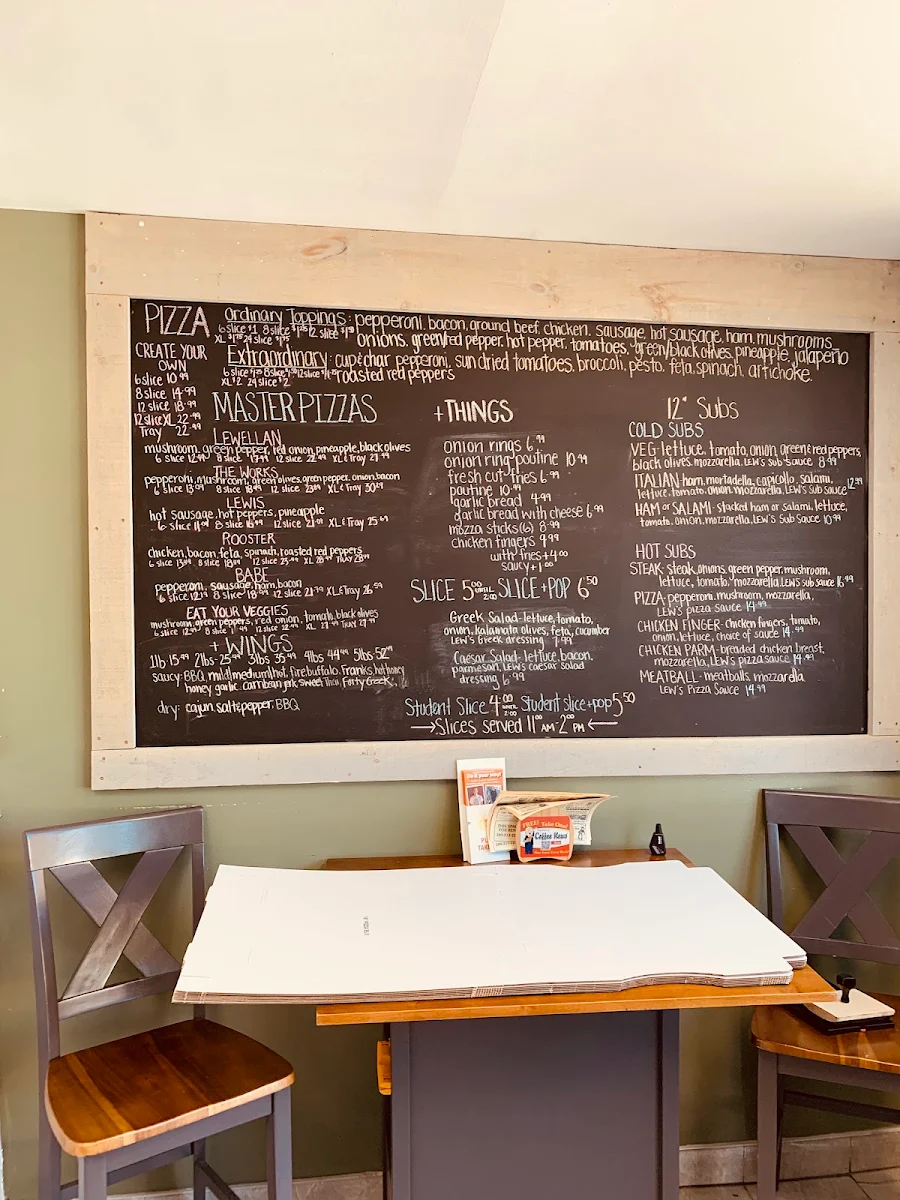 PIZZA
CREATE YOUR
OWN
6 slice 10.99
8 slice 14.99
12 slice 18.99
12 slice XL 22.99
Tray 22.99
Ordinary Toppings: pepperoni, bacon, ground beef, chicken, sausage, hot sausage, ham, mushrooms
6 slice $1 8 slice 12 slice
onions, green/red pepper, hot pepper, tomatoes, green/black olives, pineapple, jalapeño
XL 24 slice
Extraordinary: cup & char pepperoni, sun dried tomatoes, broccoli, pesto, feta, spinach, artichoke,
6 slice 8 slice 12 slice
roasted red peppers
XL $2 24 slice $2
MASTER PIZZAS
LEWELLAN
mushroom, green pepper, red onion, pineapple, black olives
6 slice 8 slice 12 slice 22.99 XL & Tray
THE WORKS
pepperoni, mushroom, green olives, green pepper, onion, bacon
6 slice 8 slice 12 slice XL & Tray
LEWIS
hot sausage, hot peppers, pineapple
6 slice 8 slice 12 slice XL & Tray
ROOSTER
chicken, bacon, feta, spinach, roasted red peppers
6 slice 8 slice 12 slice XL Tray
BABE
pepperoni, sausage, ham, bacon
6 slice 8 slice 12 slice XL & Tray
EAT YOUR VEGGIES
mushroom, green peppers, red onion, tomato, black olives
6 slice 8 slice 12 slice XL Tray
+ WINGS
1lb 15.99 2lbs 25.99 3lbs 35.99 4lbs 44.99 5lbs
saucy: BBQ, mild, medium, hot, fire, buffalo, Franks, hot honey
honey garlic, carribean jerk, sweet Thai, Forty Creek,
dry: cajun, salt & pepper, BBQ
+THINGS
onion rings 6.99
onion ring poutine 10.99
fresh cut fries 6.99
poutine 10.99
garlic bread 4.99
garlic bread with cheese 6.99
mozza sticks (6) 8.99
chicken fingers 9.99
with fries + 4.00
saucy + 1.00
SLICE 5.00 until 2:00 SLICE + POP 6.50
Greek Salad - lettuce, tomato,
onion, kalamata olives, feta, cucumber
Lew's Greek dressing 7.99
Caesar Salad - lettuce, bacon,
parmesan, LEW'S caesar salad
dressing 6.99
Student Slice 4.00 until 2:00 Student slice + pop 5.50
Slices served 11:00 AM - 2:00 PM
12" Subs
COLD SUBS
VEG - lettuce, tomato, onion, green & red peppers,
black olives, mozzarella, LEW'S sub sauce 8.99
ITALIAN - ham, mortadella, capicollo, salami,
lettuce, tomato, onion, mozzarella, LEW'S sub sauce 12.99
HAM or SALAMI - stacked ham or salami, lettuce,
tomato, onion, mozzarella, LEW'S Sub Sauce 10.99
HOT SUBS
STEAK - steak, onions, green pepper, mushroom,
lettuce, tomato, mozzarella, LEW'S sub sauce
PIZZA - pepperoni, mushroom, mozzarella,
LEW'S pizza sauce 14.99
CHICKEN FINGER - chicken fingers, tomato,
onion, lettuce, choice of sauce 14.99
CHICKEN PARM - breaded chicken breast,
mozzarella, LEW'S pizza sauce 14.99
MEATBALL - meatballs, mozzarella
LEW'S Pizza SAUCE 14.99
FREE! Take One!
Coffee News